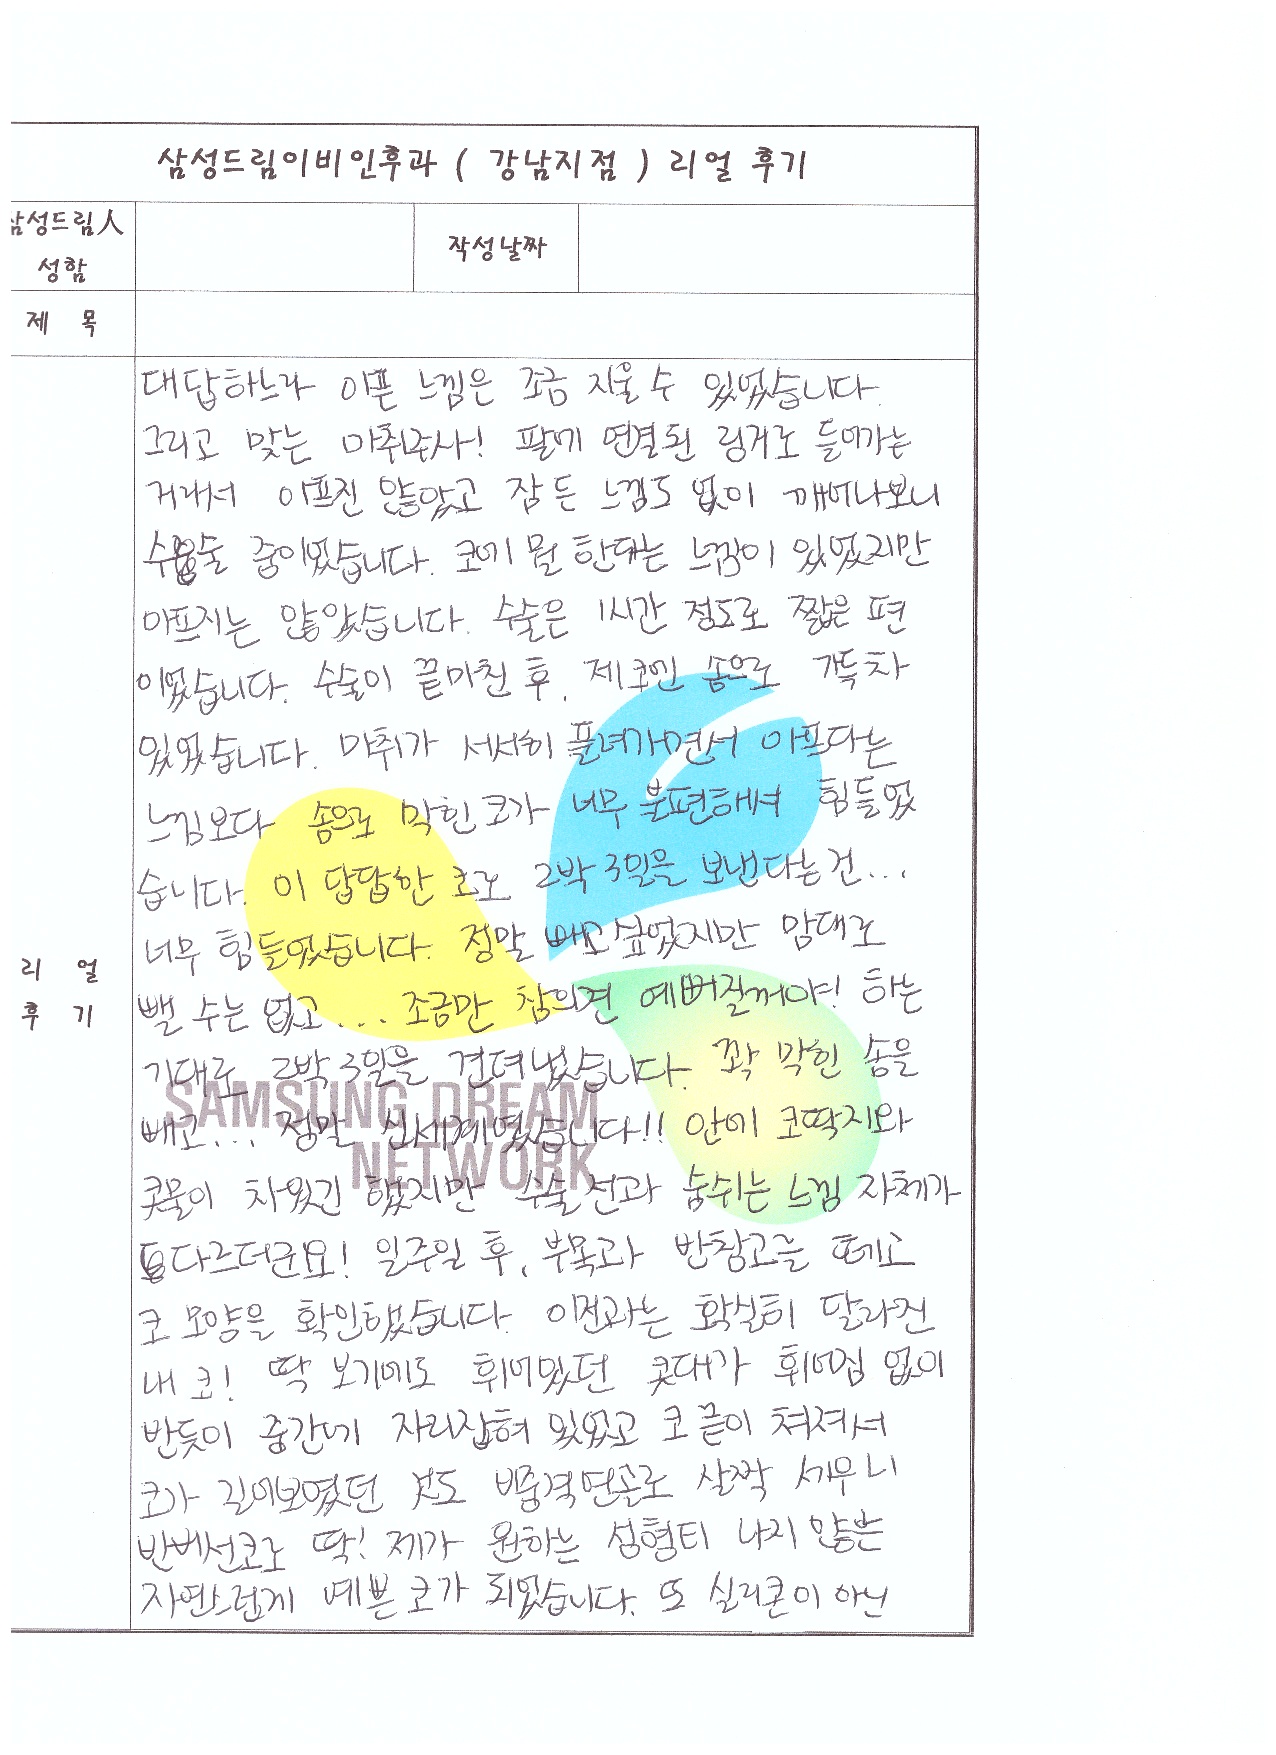 삼성드림이비인후과 ( 강남지점 ) 리얼 후기
삼성드림人
성함
작성날짜
제 목
리 얼
후 기
대답하느라 아픈 느낌은 조금 지울 수 있었습니다.
그리고 맞는 마취주사! 팔에 연결된 링거로 들어가는
거라서 아프진 않았고 잠든 느낌도 없이 깨어나보니
수술 중이었습니다. 코에 뭘 한다는 느낌이 있었지만
아프지는 않았습니다. 수술은 1시간 정도로 짧은 편
이었습니다. 수술이 끝마친 후, 제 코엔 솜으로 가득차
있었습니다. 마취가 서서히 풀려가면서 아프다는
느낌보다 솜으로 막힌 코가 너무 불편해서 힘들었
습니다. 이 답답한 코로 2박 3일을 보낸다는건...
너무 힘들었습니다. 정말 빼고싶었지만 맘대로
뺄 수는 없고... 조금만 참으면 예뻐질꺼야! 하는
기대로 2박 3일을 견뎌냈습니다. 꽉 막힌 솜을
빼고... 정말 신세계였습니다!! 안에 코딱지와
콧물이 차있긴 했지만 수술 전과 숨쉬는 느낌 자체가
다르더군요! 일주일 후, 부목과 반창고를 떼고
코 모양을 확인했습니다. 이전과는 확실히 달라진
내 코! 딱 보기에도 휘어있던 콧대가 휘어짐 없이
반듯이 중간에 자리잡혀 있었고 코 끝이 쳐져서
코가 길어보였던 것도 비중격연골로 살짝 세우니
반버선코로 딱! 제가 원하는 성형티 나지 않는
자연스럽게 예쁜 코가 되었습니다. 또 실리콘이 아닌
SAMSUNG DREAM
NETWORK